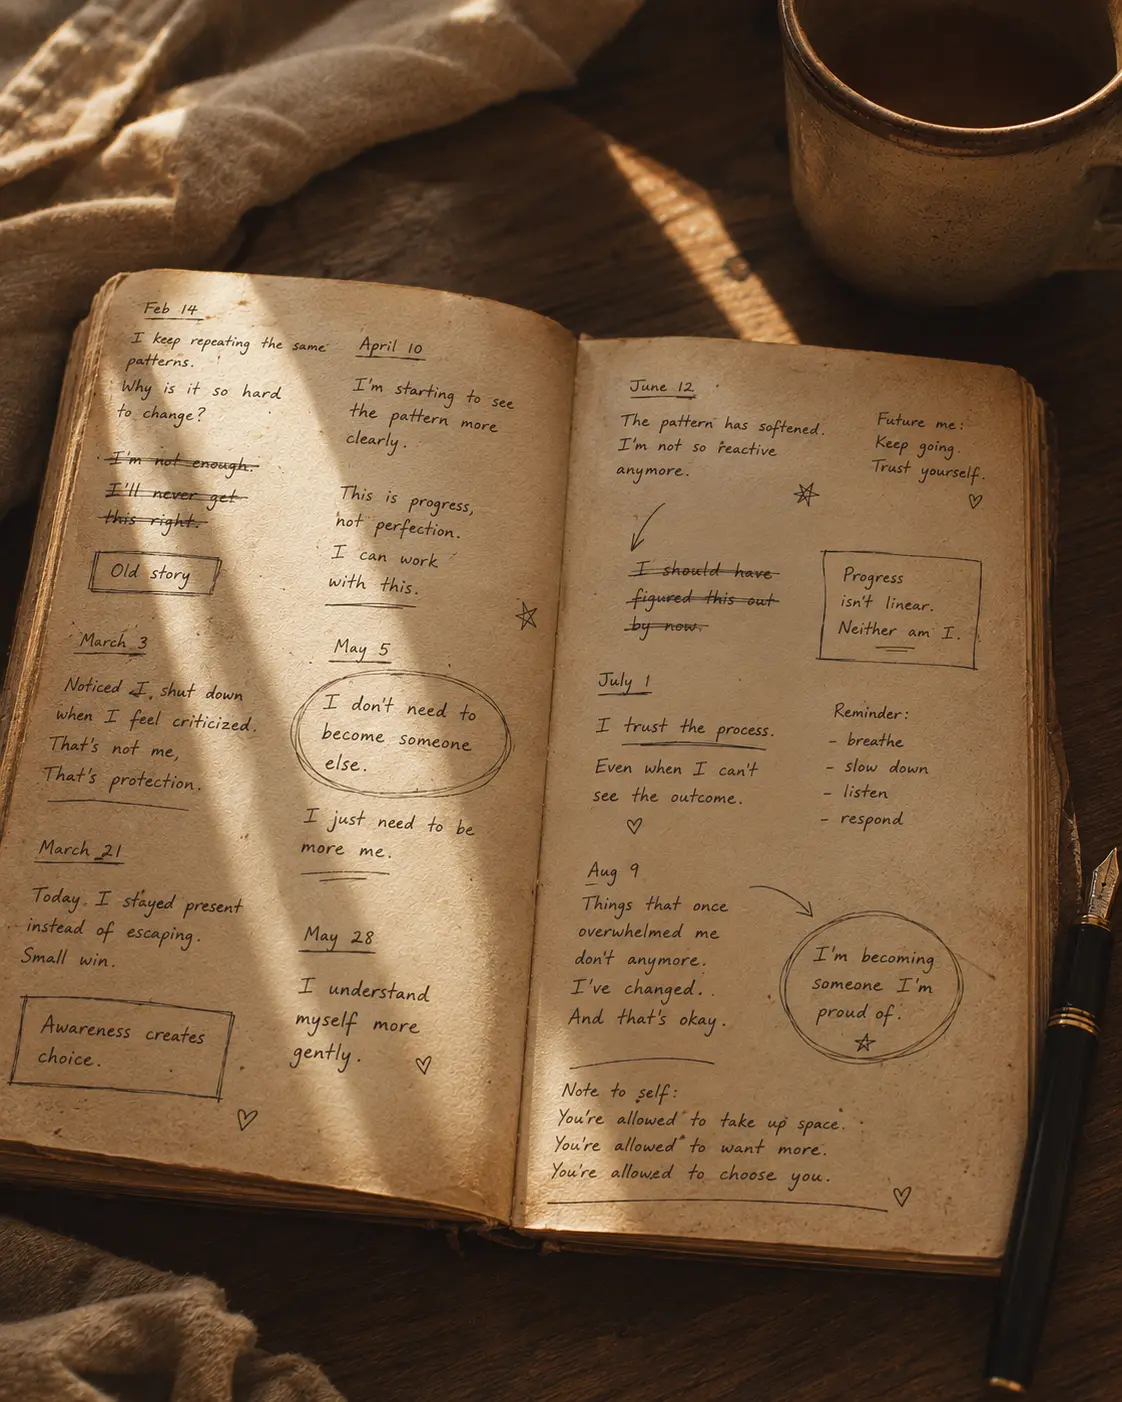 Feb 14
I keep repeating the same
patterns.
Why is it so hard
to change?
I'm not enough.
I'll never get
this right.
Old story
March 3
Noticed I shut down
when I feel criticized.
That's not me,
That's protection.
March 21
Today I stayed present
instead of escaping.
Small win.
Awareness creates
choice.
April 10
I'm starting to see
the pattern more
clearly.
This is progress,
not perfection.
I can work
with this.
May 5
I don't need to
become someone
else.
I just need to be
more me.
May 28
I understand
myself more
gently.
June 12
The pattern has softened.
I'm not so reactive
anymore.
I should have
figured this out
by now.
July 1
I trust the process.
Even when I can't
see the outcome.
Aug 9
Things that once
overwhelmed me
don't anymore.
I've changed.
And that's okay.
Future me:
Keep going.
Trust yourself.
Progress
isn't linear.
Neither am I.
Reminder:
- breathe
- slow down
- listen
- respond
I'm becoming
someone I'm
proud of.
Note to self:
You're allowed to take up space.
You're allowed to want more.
You're allowed to choose you.